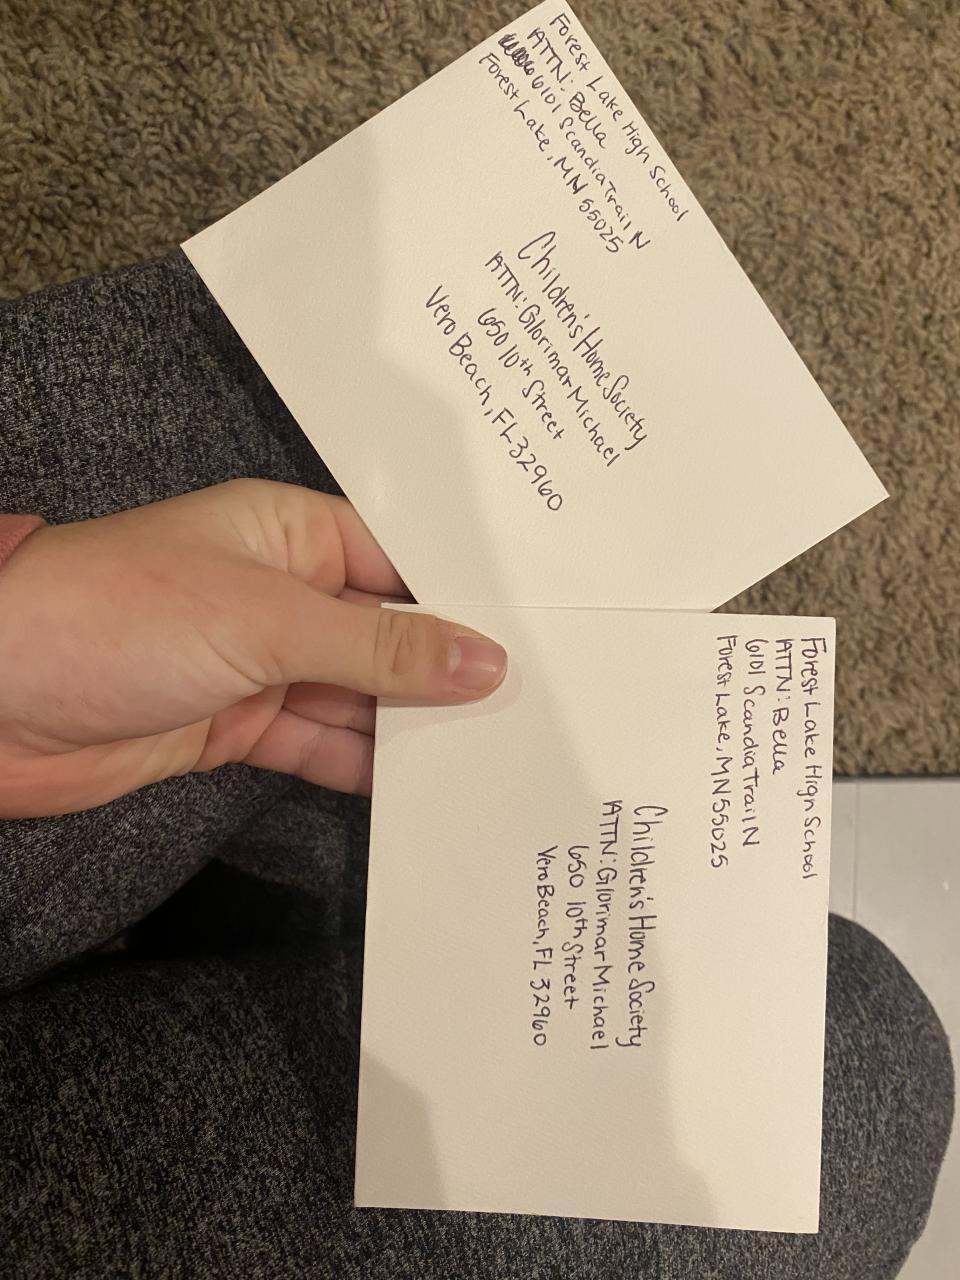 Forest Lake High School
ATTN: Bella
6101 Scandia Trail N
Forest Lake, MN 55025
Children's Home Society
ATTN: Glorimar Michael
650 10th Street
Vero Beach, FL 32960
Forest Lake High School
ATTN: Bella
6101 Scandia Trail N
Forest Lake, MN 55025
Children's Home Society
ATTN: Glorimar Michael
650 10th Street
Vero Beach, FL 32960